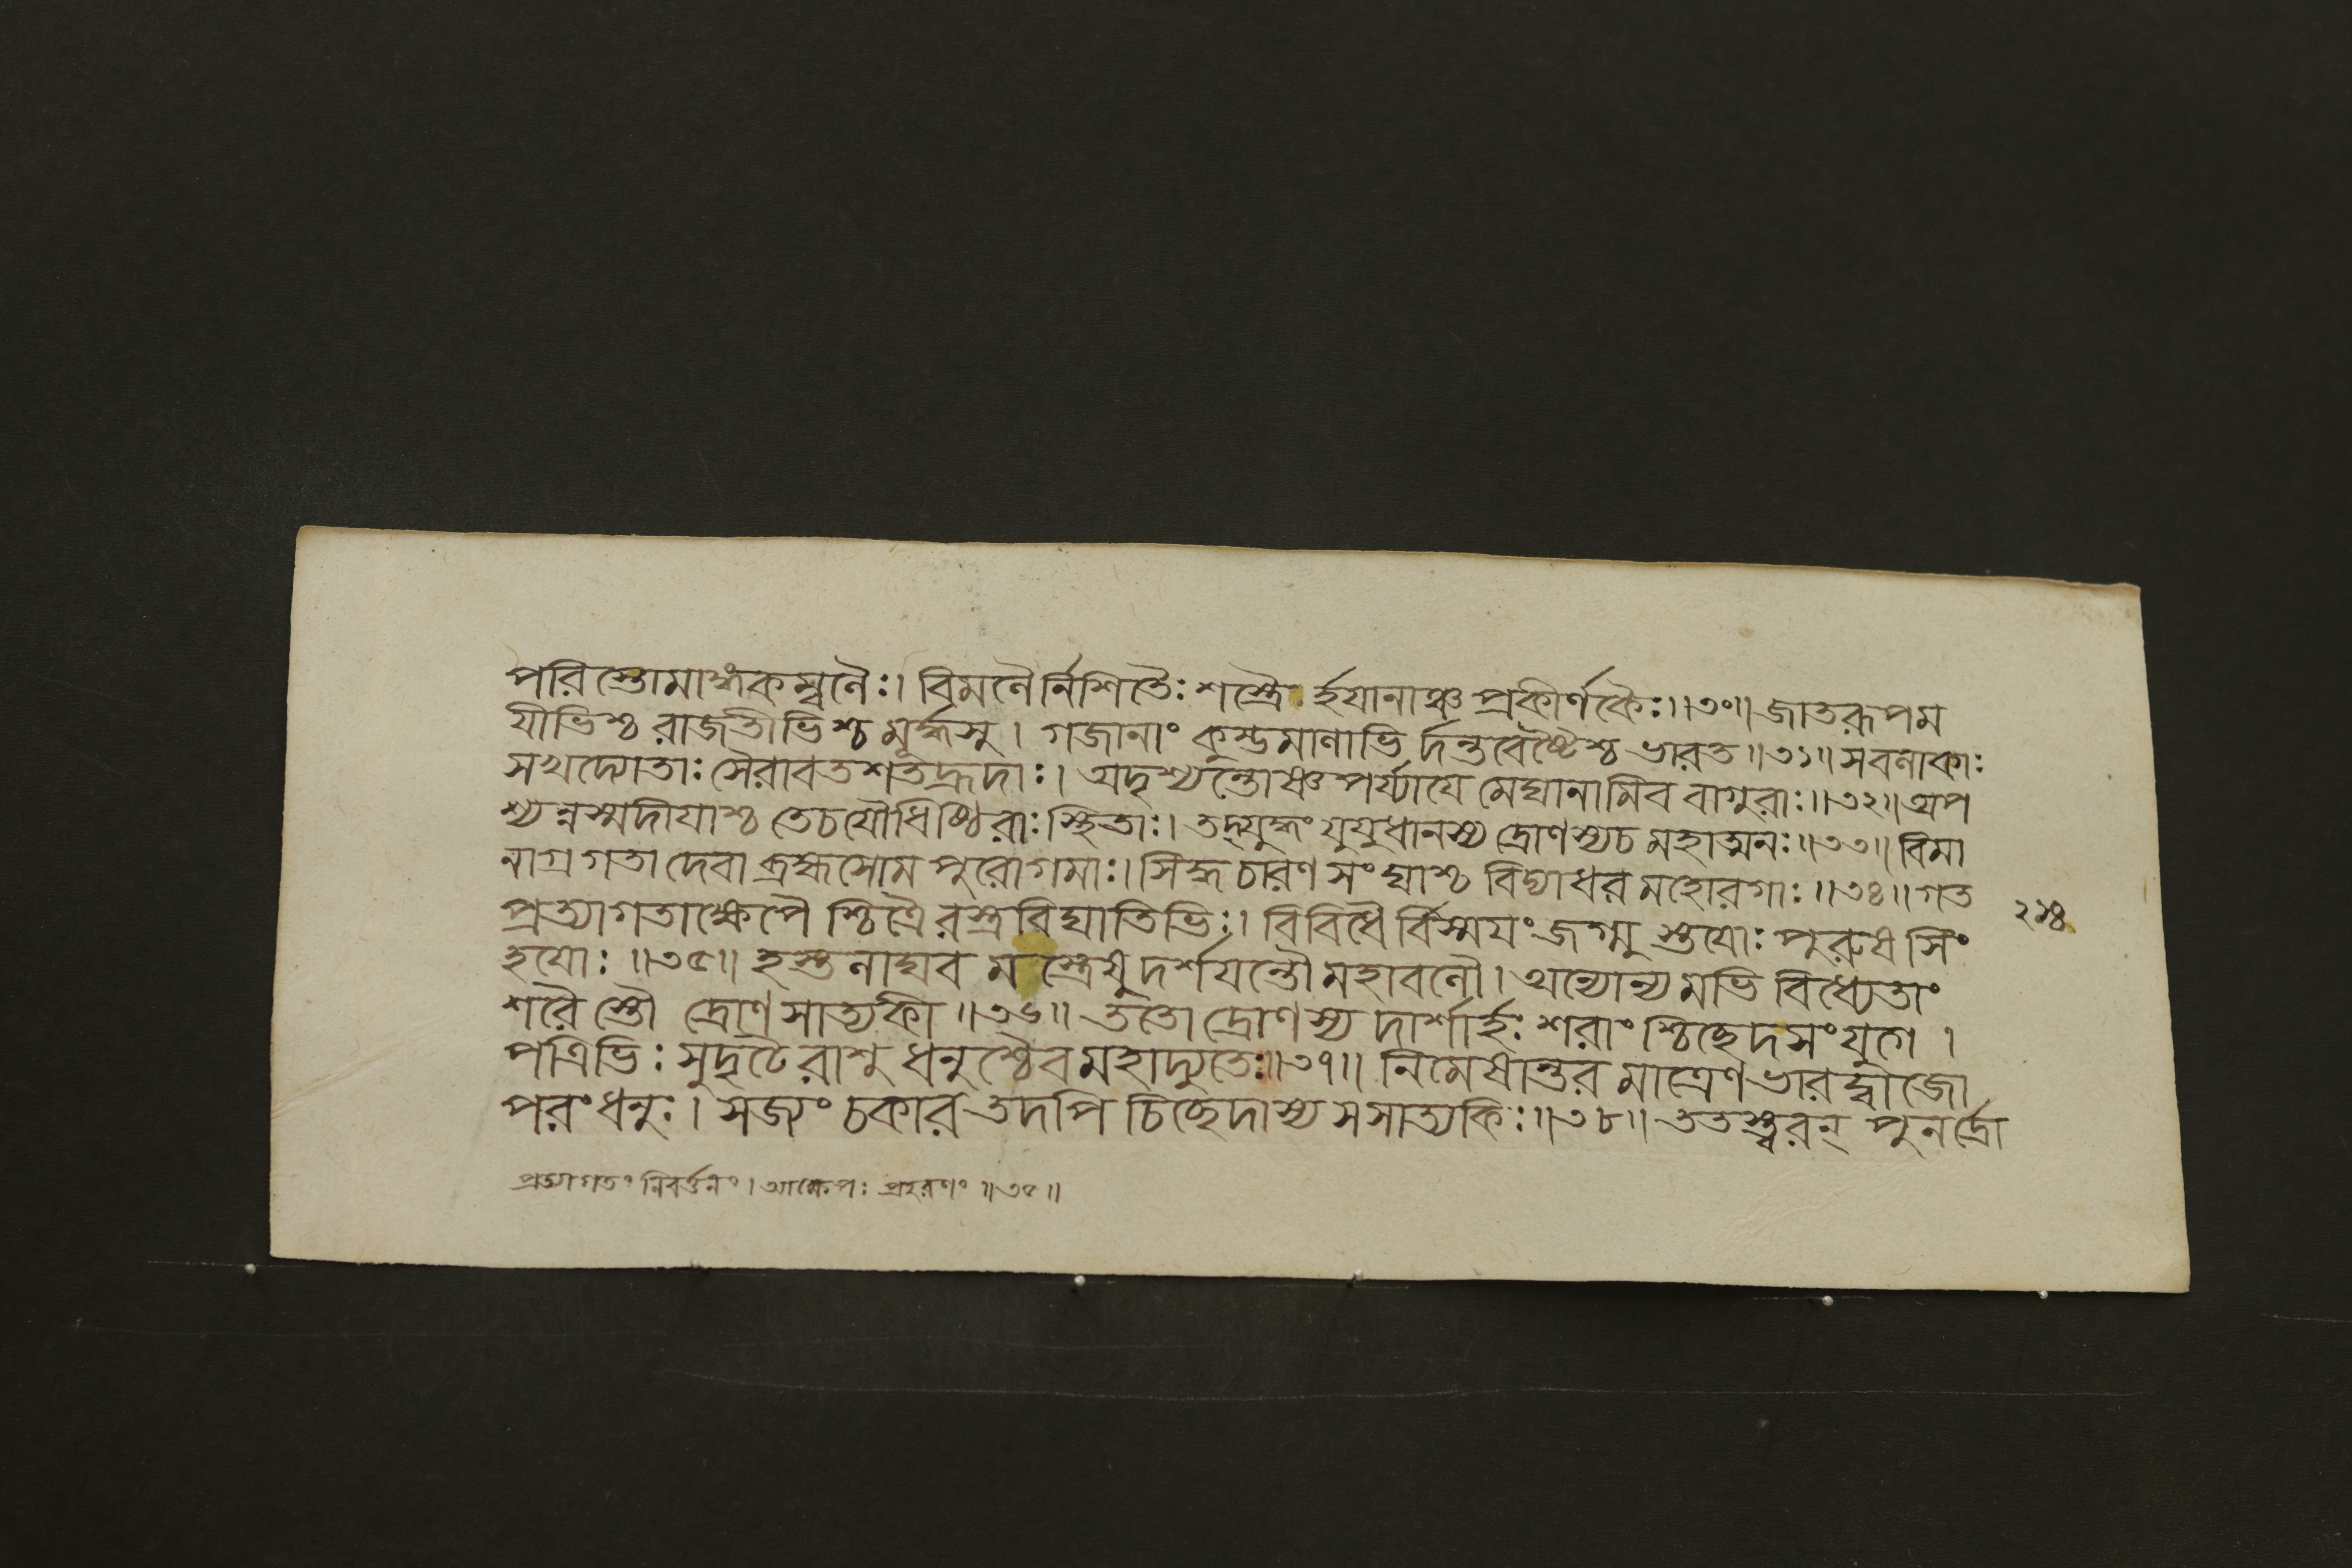 পরিস্তোমাঙ্ককম্বলৈঃ। বিমলৈর্নিশিতৈঃ শস্ত্রৈ র্হয়ানাঞ্চ প্রকীর্ণকৈঃ॥৩০॥ জাতরূপম
যীভিশ্চ রাজতীভিশ্চ মূর্দ্ধসু। গজানাং কুম্ভমালাভি র্দন্তবেষ্টৈশ্চ ভারত॥৩১॥ সবলাকাঃ
সখদ্যোতাঃ সৈরাবতশতহ্রদাঃ। অদৃশ্যন্তোষ্ণপর্য্যাযে মেঘানামিব বাগুরাঃ॥৩২॥ অপ
শ্যন্নস্মদীযাশ্চ তেচযৌধিষ্ঠিরাঃ স্থিতাঃ। তদ্যুদ্ধং যুযুধানস্য দ্রোণস্যচ মহাত্মনঃ॥৩৩॥ বিমা
নাগ্রগতা দেবা ব্রহ্মসোম পুরোগমাঃ। সিদ্ধ চারণ সংঘাশ্চ বিদ্যাধর মহোরগাঃ॥৩৪॥ গত
প্রত্যাগতাক্ষেপৈ শ্চিত্রৈরস্ত্রবিঘাতিভিঃ। বিবিধৈ র্বিস্ময়ং জগ্মু স্তযোঃ পুরুষ সিং
হযোঃ॥৩৫॥ হস্তলাঘব মস্ত্রেষু দর্শযন্তৌ মহাবলৌ। অন্যোন্য মভি বিধ্যেতাং
শরৈ স্তৌ দ্রোণ সাত্যকী॥৩৬॥ ততো দ্রোণস্য দাশার্হঃ শরাং শ্চিচ্ছেদসংযুগে।
পত্রিভিঃ সুদৃঢৈরাশু ধনুশ্চৈব মহাদ্যুতেঃ॥৩৭॥ নিমেষান্তর মাত্রেণ ভারদ্বাজো
পরং ধনুঃ। সজ্যং চকার তদপি চিচ্ছেদাস্য সসাত্যকিঃ॥৩৮॥ ততস্ত্বরন্ পুনর্দ্রো
প্রত্যাগতং নিবর্ত্তনং। আক্ষেপঃ প্রহরণং॥৩৫॥